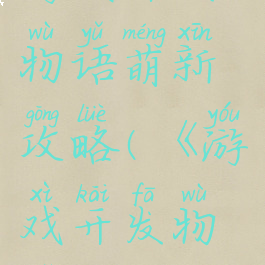 wù yǔ méng xīn
物语萌新
gōng lüè yóu
攻略(《游
xì kāi fā wù
戏开发物